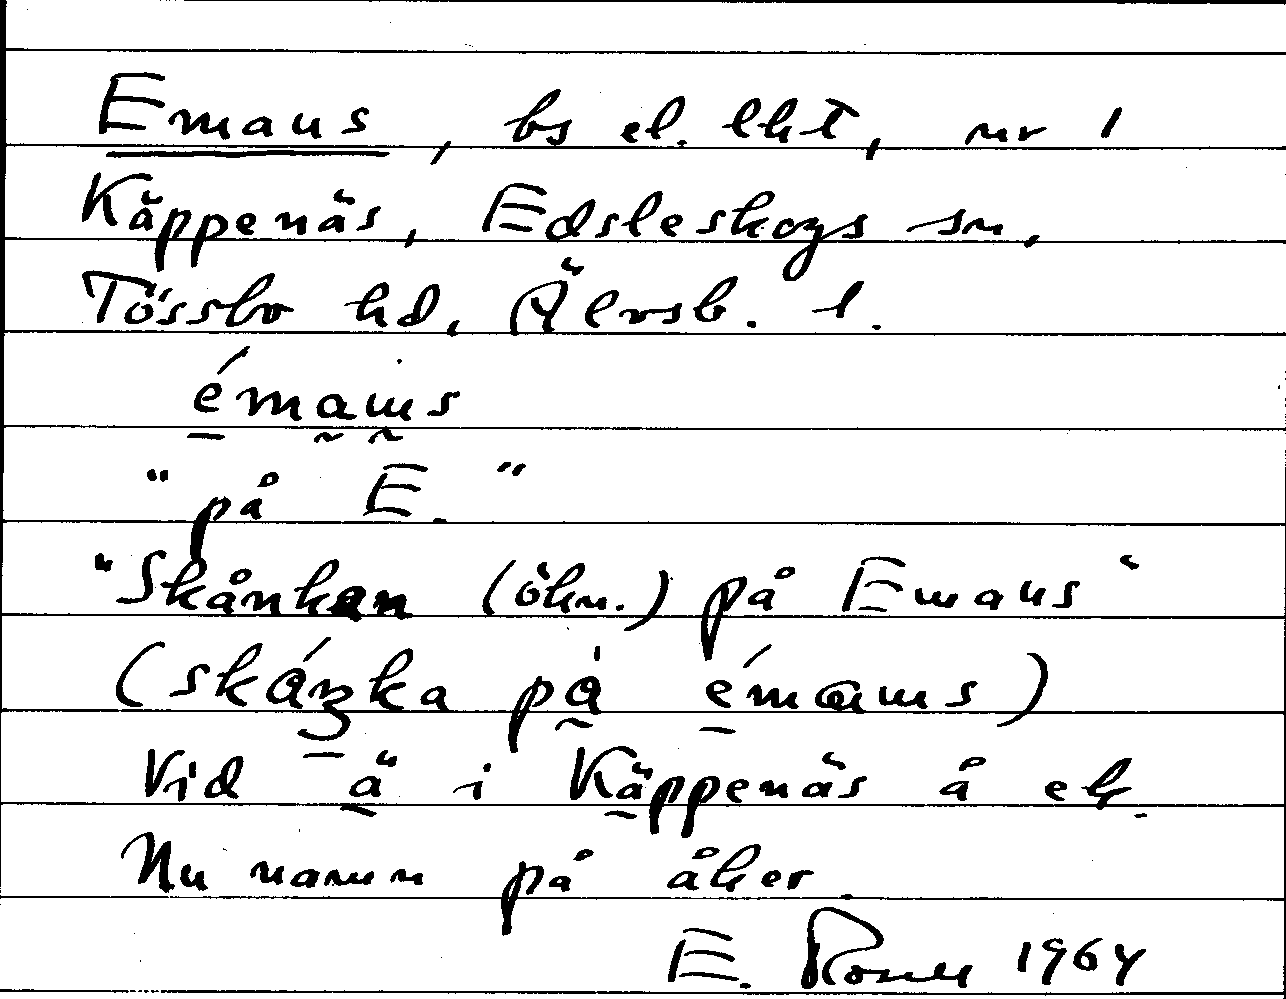 Emaus, bs el. lht, nr 1
Käppenäs, Edsleskogs sn,
Tössbo hd, Älvsb. l.
émaus
"på E."
"Skånkan (ökn.) på Emaus"
(skáŋka på émaus)
Vid ä i Käppenäs å ek.
Nu namn på åker.
E. Rosell 1964